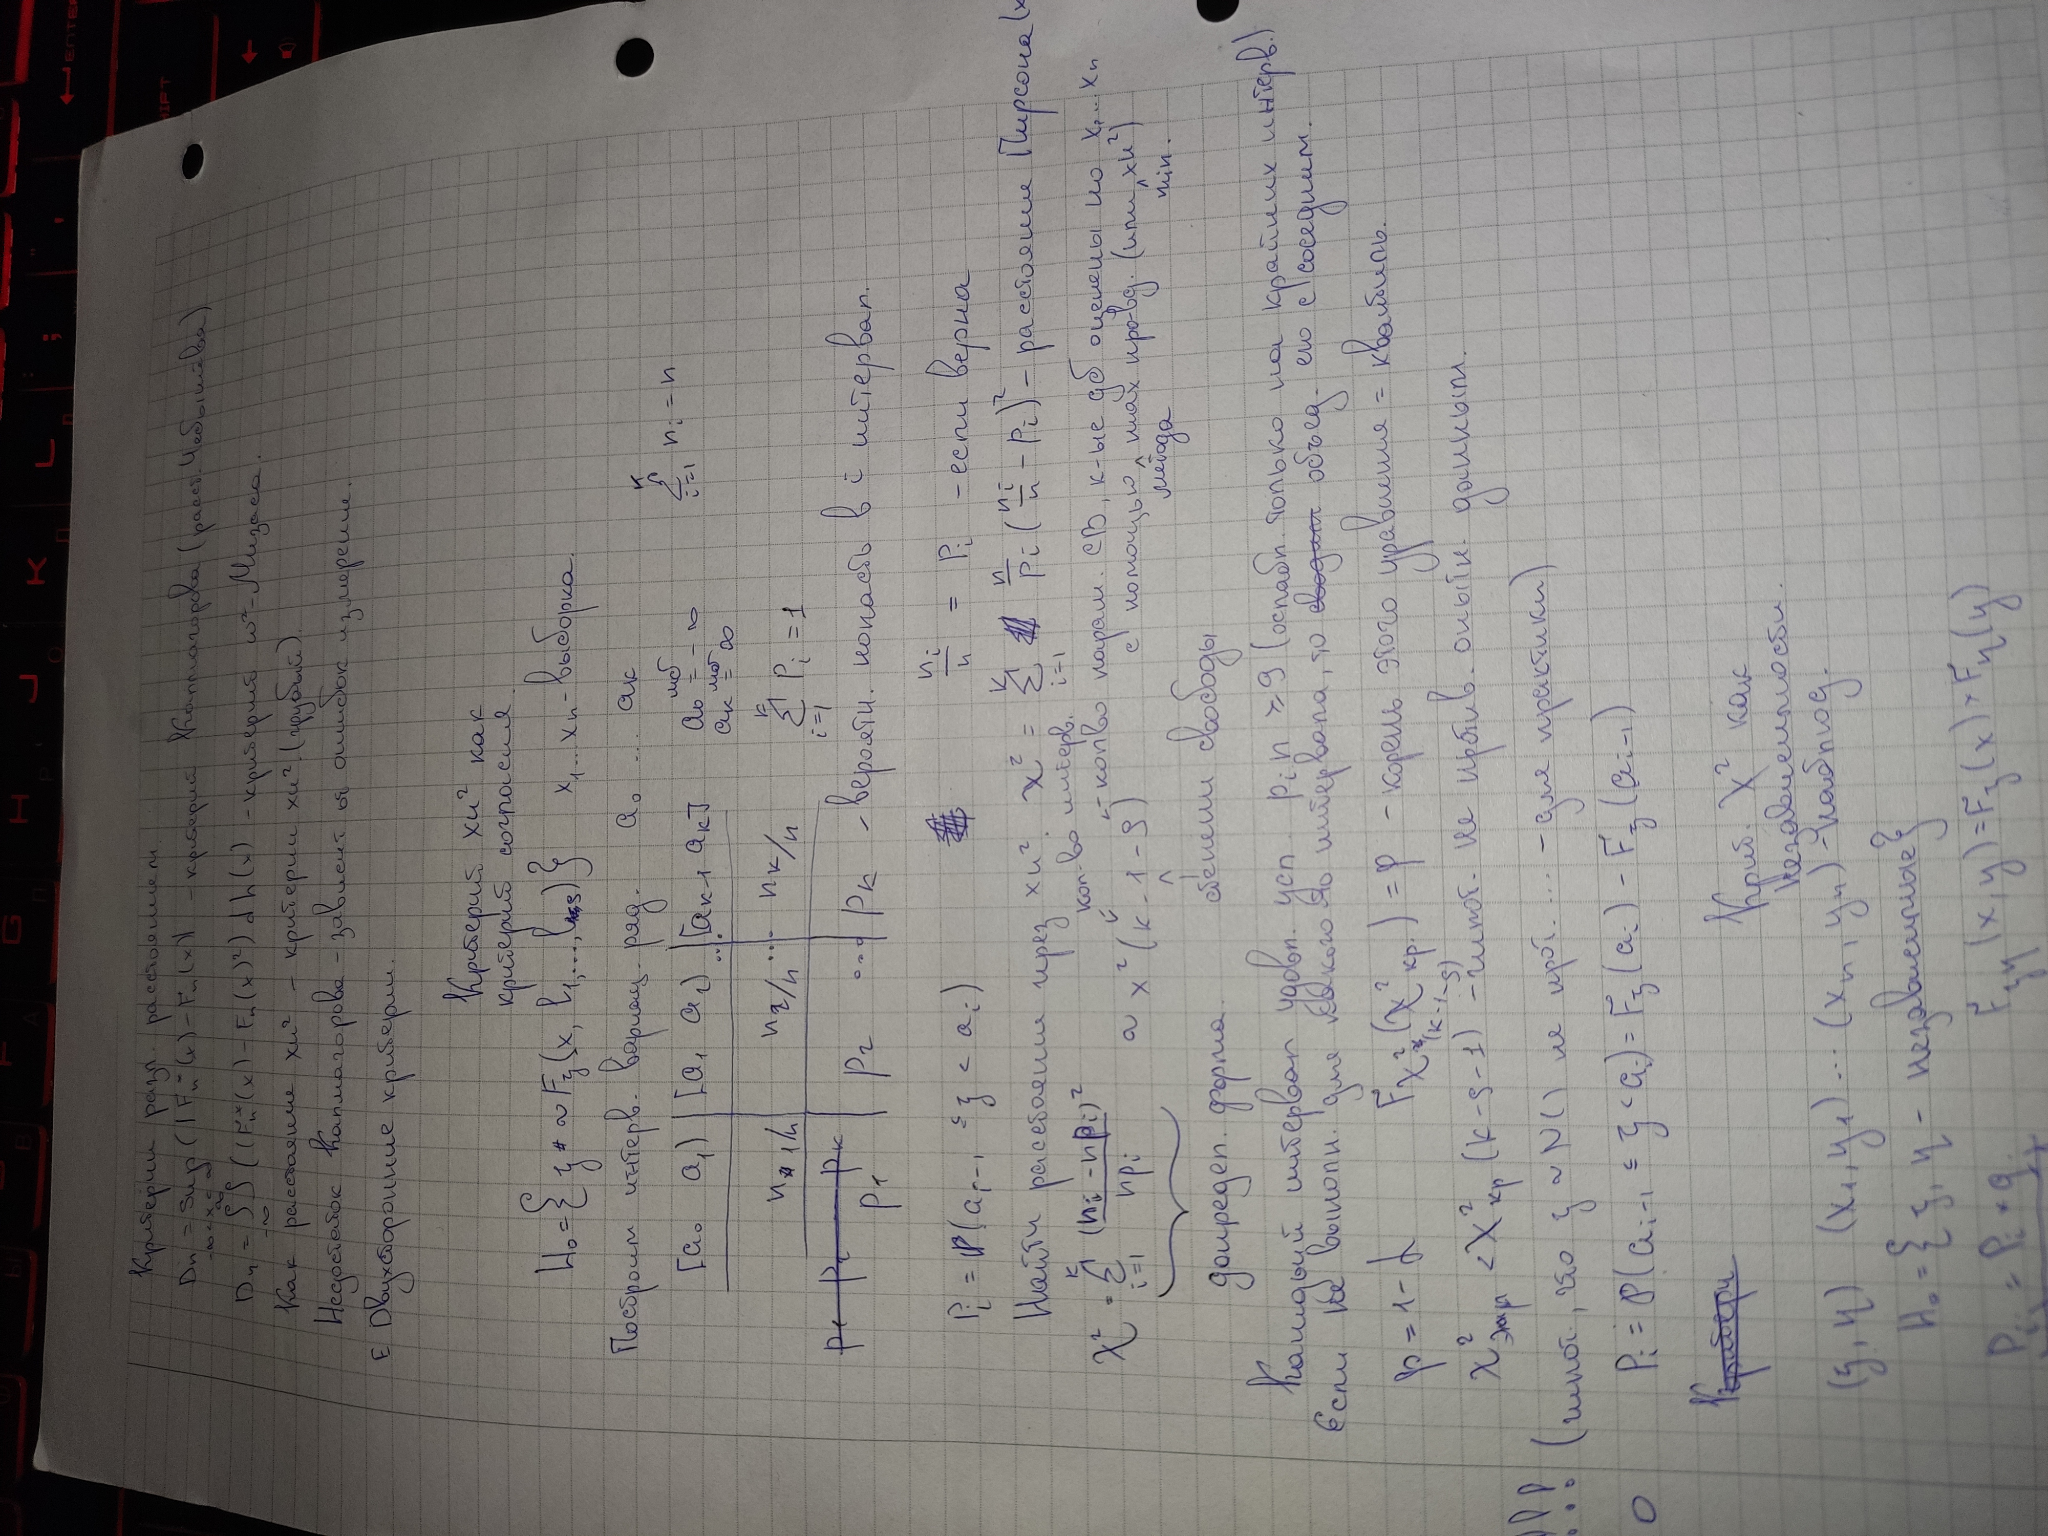 Критерии разл. расстояний.
Dn = sup (|Fn*(x) - Fn(x)| - критерий Колмогорова (расст. Чебышева)
-∞<x<∞
Dn = ∫ ((Fn*(x) - Fn(x)²) dh(x) - критерий ω² - Мизеса.
Как расстояние хи² - критерий хи². (грубый).
Недостаток Колмогорова - зависит от ошибок измерения.
Е Двухсторонние критерии.
Критерий хи² как
критерий согласия
H₀ = { ξ ~ Fξ(x, h₁, ..., hs) } x₁...xn - выборка.
Построим интерв. вариац. ряд. a₀ ... aк
[a₀ a₁) | [a₁ a₂) | ... [aк-1 aк] a₀ мб = -∞ aк мб = ∞ ∑ i=1 nᵢ = n
n₁/n n₂/n ... nк/n ∑ i=1 pᵢ = 1
p₁ p₂ pк
p₁ p₂ ... pк - вероятн. попасть в i интервал.
pᵢ = P(aᵢ₋₁ ≤ ξ < aᵢ) nᵢ/n = pᵢ - если верна
Найти расстояние через хи². χ² = ∑ i=1 n/pᵢ (nᵢ/n - pᵢ)² - расстояние Пирсона
χ² = ∑ i=1 (nᵢ - npᵢ)²/npᵢ ~ χ²(k-1-s)
кол-во интерв.
кол-во парам. СВ, к-ые дб оценены по x₁...xn
с помощью метода max пр-вд. (или min хи²)
степени свободы
допредел. форма.
Каждый интервал удовл. усл. pᵢn ≥ 9 (ослабл. только на крайних интерв.)
Если не выполн. для какого-то интервала, то объед. его с соседним.
p = 1 - α Fχ²(k-1-s)(χ²кр.) = p - корень этого уравнения = квантиль.
χ²экр < χ²кр (k-s-1) - гипот. не против. опытн. данным.
!!! (гипот., что ξ ~ N() не прот. ... - для практики)
0 pᵢ = P(aᵢ₋₁ ≤ ξ < aᵢ) = Fξ(aᵢ) - Fξ(aᵢ₋₁)
Критери
Крит. χ² как
независимости.
(ξ, η) (x₁, y₁) ... (xn, yn) - наблюд.
H₀ = { ξ, η - независимые }
Fξη(x, y) = Fξ(x) * Fη(y)